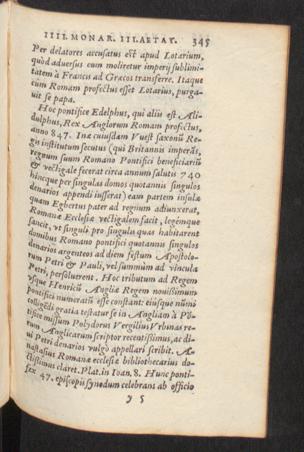 IIII. MONAR. III. AETAT. 345
Per delatores accusatus est apud Lotarium,
quòd aduersus eum moliretur imperij sublimi-
tatem à Francis ad Græcos transferre. Itaque
cum Romam profectus esset Lotarius, purga-
uit se papa.
Hoc pontifice Edelphus, qui aliis est Ali-
dulphus, Rex Anglorum Romam profectus,
anno 847. Inæ cuiusdam Vuest saxonũ Re-
gis institutum secutus (qui Britannis imperãs,
regnum suum Romano Pontifici beneficiariũ
& vectigale fecerat circa annum salutis 740
hincque per singulas domos quotannis singulos
denarios appendi iusserat) eam partem insulæ
quam Egbertus pater ad regnum adiunxerat,
Romanæ Ecclesiæ vectigalem facit, legémque
sancit, vt singuli pro singulis quas habitarent
domibus Romano pontifici quotannis singulos
denarios argenteos ad diem festum Apostolo-
rum Petri & Pauli, vel summùm ad vincula
Petri, persoluerent. Hoc tributum ad Regem
vsque Henricũ Angliæ Regem nouissimum
pontifici numeratũ esse constant: eiúsque nũmi
colligẽdi gratia testatur se in Angliam à Põ-
tifice missum Polydorus Vergilius Vrbinas re-
rum Anglicarum scriptor recentissimus, ac di-
ui Petri denarios vulgò appellari scribit. A-
nastasius Romanæ ecclesiæ bibliothecarius do-
ctissimus claret. Plat. in Ioan. 8. Hunc ponti-
fex 47. episcopis synodum celebrans ab officio
y 5